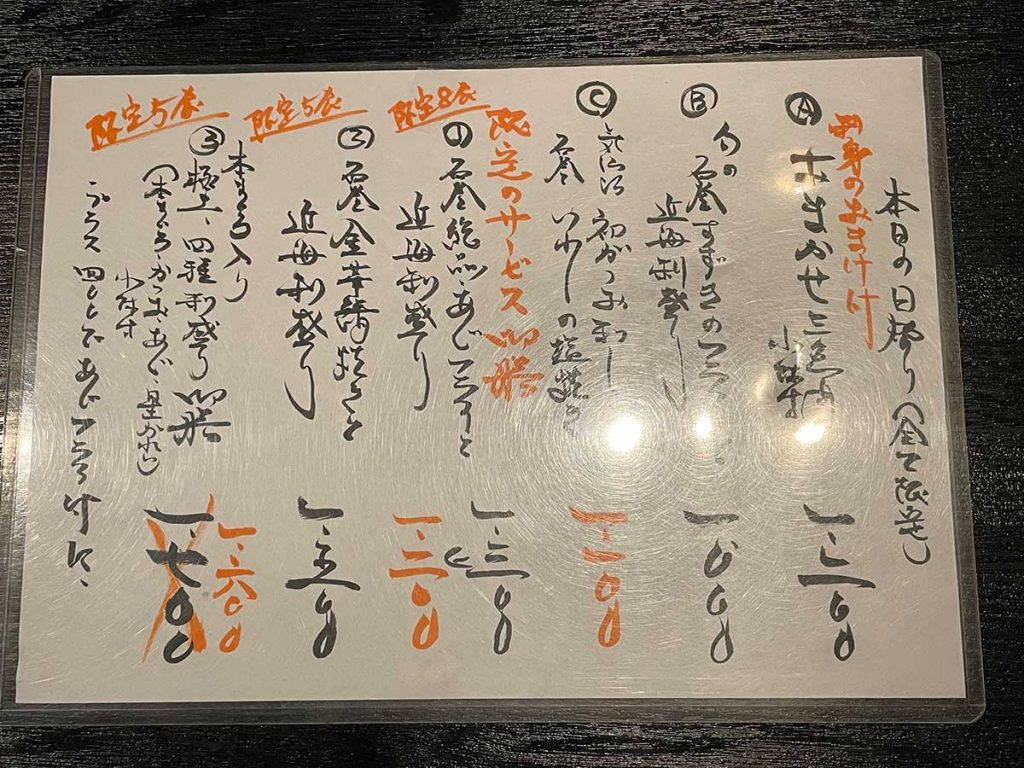 本日の日替り(全て限定)
刺身のおまけ付
Ⓐ おまかせ三色丼
小鉢付
一、二〇〇
Ⓑ 旬の
石巻すずきのフライ
近海刺盛り
一、〇〇〇
Ⓒ 気仙沼 初がつお刺し
石巻 いわしの塩焼き
一、一〇〇
限定のサービス御膳
限定8食
① 石巻絶品、あじフライと
近海刺盛り
一、三〇〇
一、二〇〇
限定5食
② 石巻金華鯖焼きと
近海刺盛り
一、五〇〇
限定5食
本まぐろ入り
③ 極上、四種刺盛り御膳
(本まぐろ・かつお・あじ・
小鉢付
一、六〇〇
一、七〇〇
プラス 四〇〇で あじフライ付に、